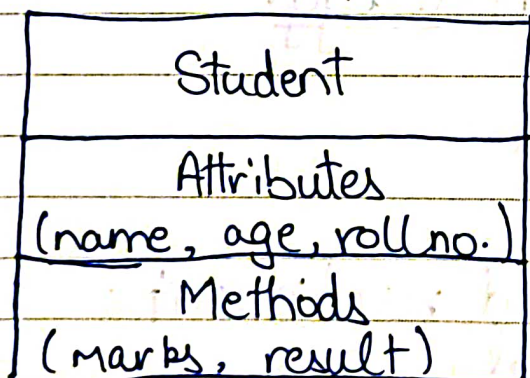 Student
Attributes
(name, age, roll no.)
Methods
(marks, result)